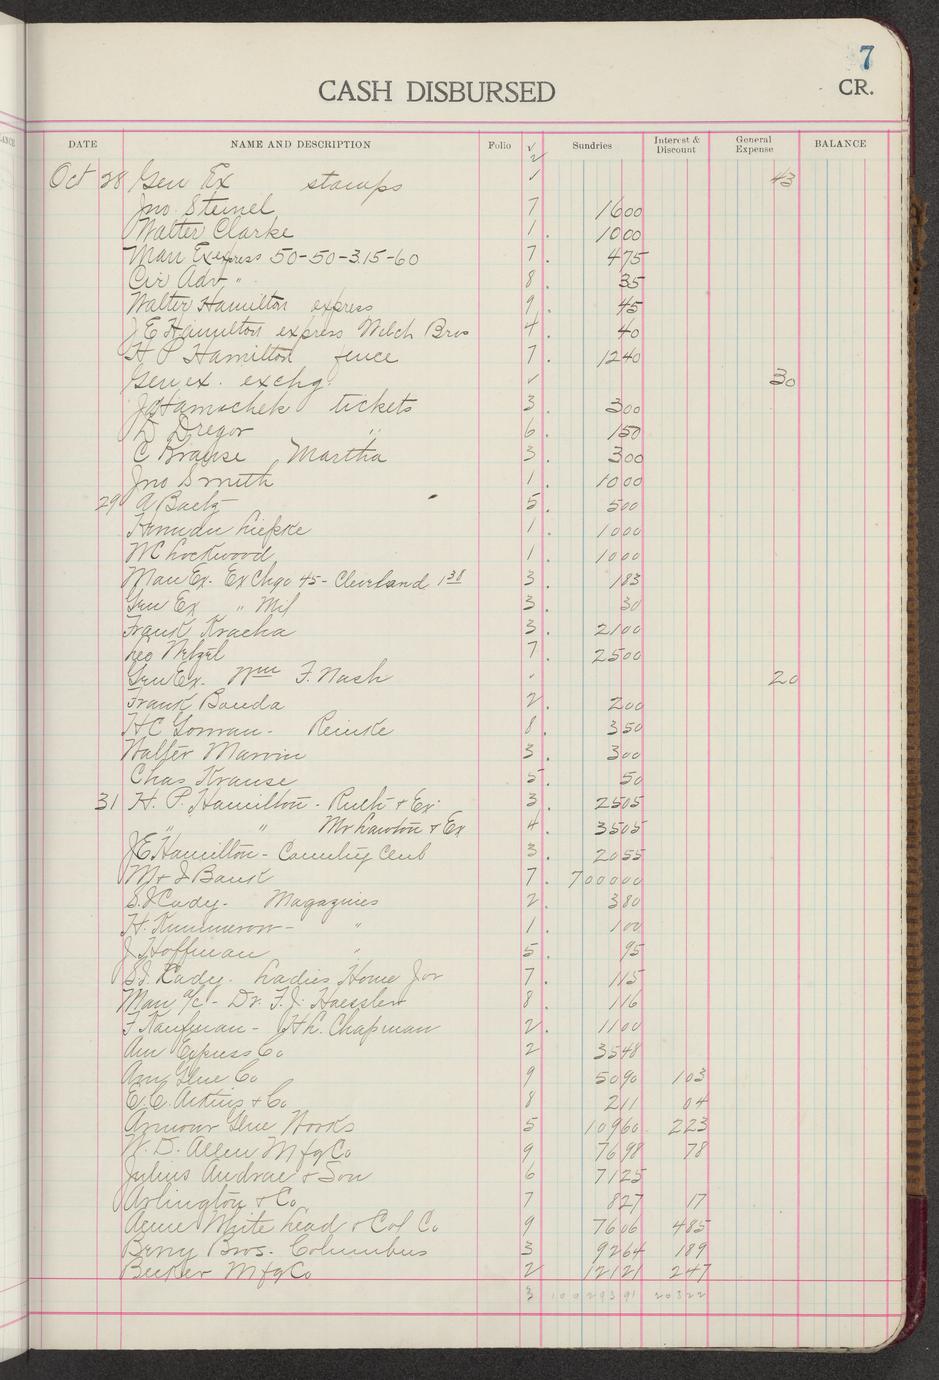 7
CASH DISBURSED
CR.
DATE NAME AND DESCRIPTION Folio √ Sundries Interest & Discount General Expense BALANCE
Oct 28 Gen Ex stamps √ 43
Jno. Steinel 7 1600
Walter Clarke 1 . 1000
Man Express 50-50-3.15-60 7 . 475
Cir Adv " 8 . 35
Walter Hamilton express 9 . 45
J E Hamilton express Welch Bros 4 . 40
H P Hamilton fence 7 . 1240
Gen ex. exchg. √ 30
J Hamachek tickets 3 . 300
D Dregor " 6 . 150
C Krause Martha 3 . 300
Jno Smith 1 . 1000
29 A Baetz 5 . 500
Herman Liefke 1 . 1000
W C Lockwood 1 . 1000
Man Ex. Ex Chgo 45 - Cleveland 1 38 3 . 183
Gen Ex " Mil 3 . 30
Frank Kracha 3 . 2100
Leo Netzel 7 . 2500
Gen Ex. Wm F. Nash 20
Frank Bouda 2 . 200
H C Gowran - Reinke 8 . 350
Walter Marvin 3 . 300
Chas Krause 5 . 50
31 H. P. Hamilton - Ruth & Ex. 3 . 2505
" " Mr Lawton & Ex 4 . 3505
J E Hamilton - Country Club 3 . 2055
M & S Bank 7 . 700000
S. J Cady - Magazines 2 . 380
H. Kummerow - " 1 . 100
J Hoffman " 5 . 95
S. J. Cady. Ladies Home Jor 7 . 115
Man a/c - Dr. F. J. Haessler 8 . 116
F Kaufman - J H L. Chapman 2 . 1100
Am Express Co 2 3548
Am Glue Co 9 5090 103
E. C. Atkins & Co 8 211 04
Armour Glue Works 5 10960 223
W. D. Allen Mfg Co 9 7698 78
Julius Andrae & Son 6 7125
Arlington & Co. 7 827 17
Acme White Lead & Col Co 9 7606 485
Berry Bros. Columbus 3 9264 189
Becker Mfg Co 2 12121 247
3